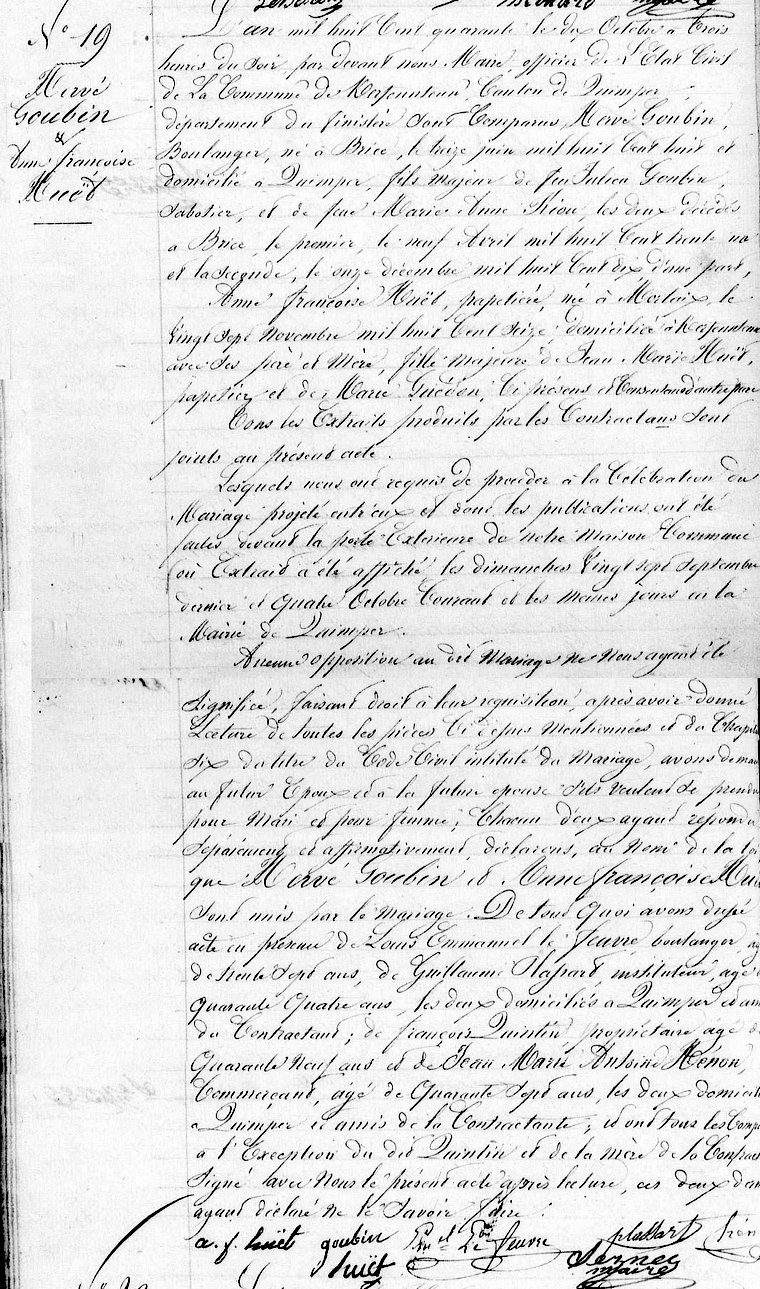 N.o 19
Hervé
Goubin
&
Anne françoise
Huët
L'an mil huit Cent quarante le dix Octobre à trois
heures du Soir par devant nous Maire, officier de L'Etat Civil
de La Commune de Kerfeunteun, Canton de Quimper,
département du finistère Sont Comparus Hervé Goubin,
Boulanger, né à Briec, le treize juin mil huit Cent huit et
domicilié à Quimper, fils majeur de feu Julien Goubin,
Sabotier, et de feue Marie Anne Riou, les deux décédés
à Briec, le premier, le neuf Avril mil huit Cent trente
et la Seconde, le onze décembre mil huit Cent dix d'une part,
Anne françoise Huët, papetière, né à Morlaix, le
vingt Sept Novembre mil huit Cent Seize, domiciliée à Kerfeunteun
avec Ses père et Mère, fille majeure de Jean Marie Huët,
papetier et de Marie Guédon, Ci présens et Consentans d'autre part
Tous les Extraits produits par les Contractans Sont
joints au présent acte.
Lesquels nous ont requis de procéder à la Célébration du
Mariage projeté entr'eux et dont les publications ont été
faites devant la porte Extérieure de notre Maison Commune
où Extrait a été affiché, les dimanches Vingt Sept Septembre
dernier et Quatre Octobre Courant et les mêmes jours en la
Mairie de Quimper.
Aucune opposition au dit Mariage ne Nous ayant été
Signifiée, faisant droit à leur requisition, après avoir donné
Lecture de toutes les pièces Ci dessus Mentionnées et du Chapitre
Six du titre du Code Civil intitulé du Mariage, avons deman
au futur Epoux et à la future épouse S'ils veulent Se prendre
pour Mari et pour femme; Chacun d'eux ayant répondu
Séparément et affirmativement, déclarons, au Nom de la loi
que Hervé Goubin et Anne françoise Huë
Sont unis par le mariage. De tout Quoi avons dressé
acte en présence de Louis Emmanuel le feuvre, boulanger, âg
de trente Sept ans, de Guillaume Plassart, instituteur, âgé d
quarante Quatre ans, les deux domiciliés à Quimper et am
du Contractant; de françois Quintin, propriétaire âgé de
Quarante Neuf ans et de Jean Marie Antoine Hénon,
Commerçant, âgé de Quarante Sept ans, les deux domicili
à Quimper et amis de la Contractante; et ont tous les Comp
à l'Exception du dit Quintin et de la mère de la Contrac
Signé avec Nous le présent acte après lecture, ces deux d
ayant déclaré ne le Savoir faire.
a. f. huët goubin Le feuvre plassart hén
huët Maire